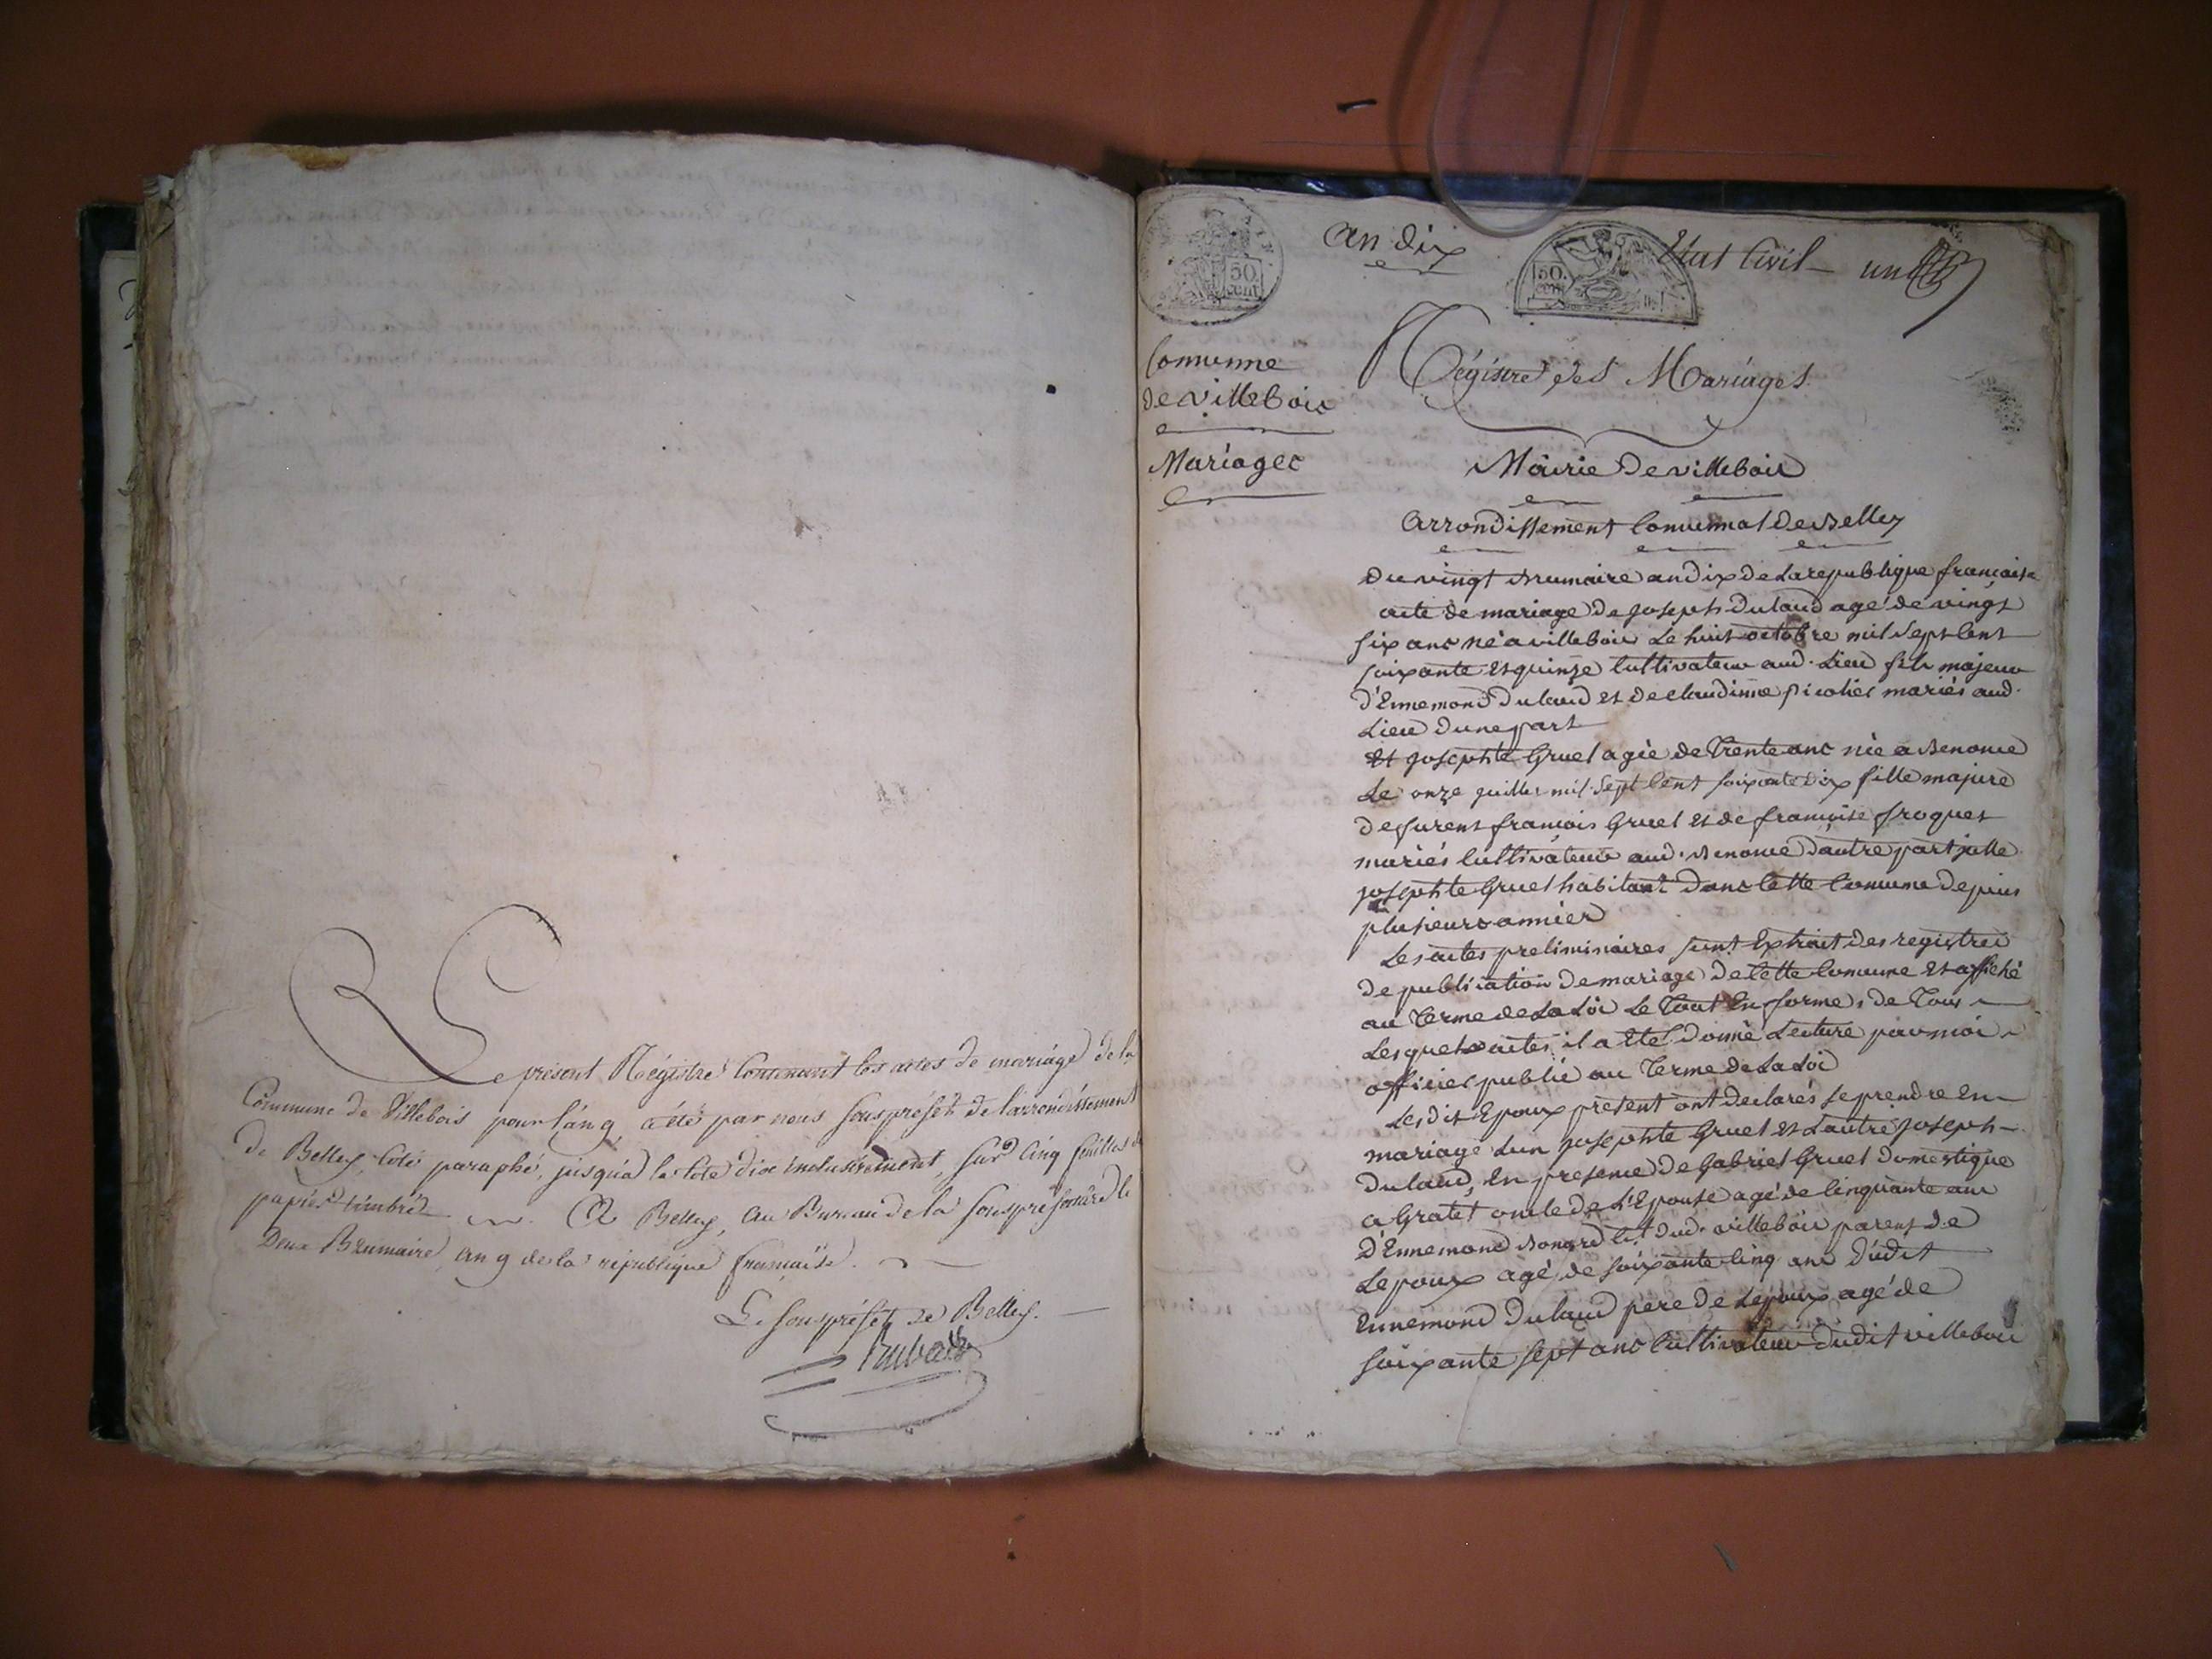 Le présent Régistre Contenant les actes de mariage de la
Commune de Villebois pour l'an 9, a été par nous souspréfet de l'arrondissement
de Belley, coté paraphé, jusqu'à la cote dix inclusivement, sur cinq feuilles de
papier timbré. A Belley, au Bureau de la souspréfecture le
Deux Brumaire an 9 de la république française.
Le souspréfet de Belley.
an dix
Etat Civil un
50. cent
50. cen
Commune
de villebois
Mariages
Régistre des Mariages
Mairie de villebois
arrondissement Communal de Belley
du vingt Brumaire an dix de La republique française
acte de mariage de joseph dulaud agé de vingt
six ans né a villebois Le huit octobre mil sept Cent
soixante et quinze Cultivateur aud. Lieu fils majeur
d'Ennemond dulaud et de claudinne picollet mariés aud.
Lieu dune part
et josephte Gruel agée de Trente ans née a Benonce
Le onze juillet mil sept Cent soixante dix fille majure
de furent françois Gruel et de françoise froquet
mariés Cultivateur aud. Benonce dautre part jcelle
josephte Gruel habitant dans Cette Comune depuis
plusieurs annier
Les actes preliminaires sunt Extrait des registres
de publication de mariage de Cette Comune et affiché
au Terme de La Loi Le Tout En forme, de Tous
Lesquels actes il a Eté donné Lecture par moi
officier publié au Terme de La Loi
Lesdit Epoux présent ont declarés se prendre En
mariage Lun josephte Gruel et Lautre joseph
dulaud, En presence de Gabriel Gruel domestique
a Gratet oncle de L'Epouse agé de Cinquante ans
d'Ennemond Bonard Cult dud. villebois parent de
Lepoux agé de soixante Cinq ans dudit
Ennemond dulaud pere de Lepoux agé de
soixante sept ans Cultivateur dudit villebois